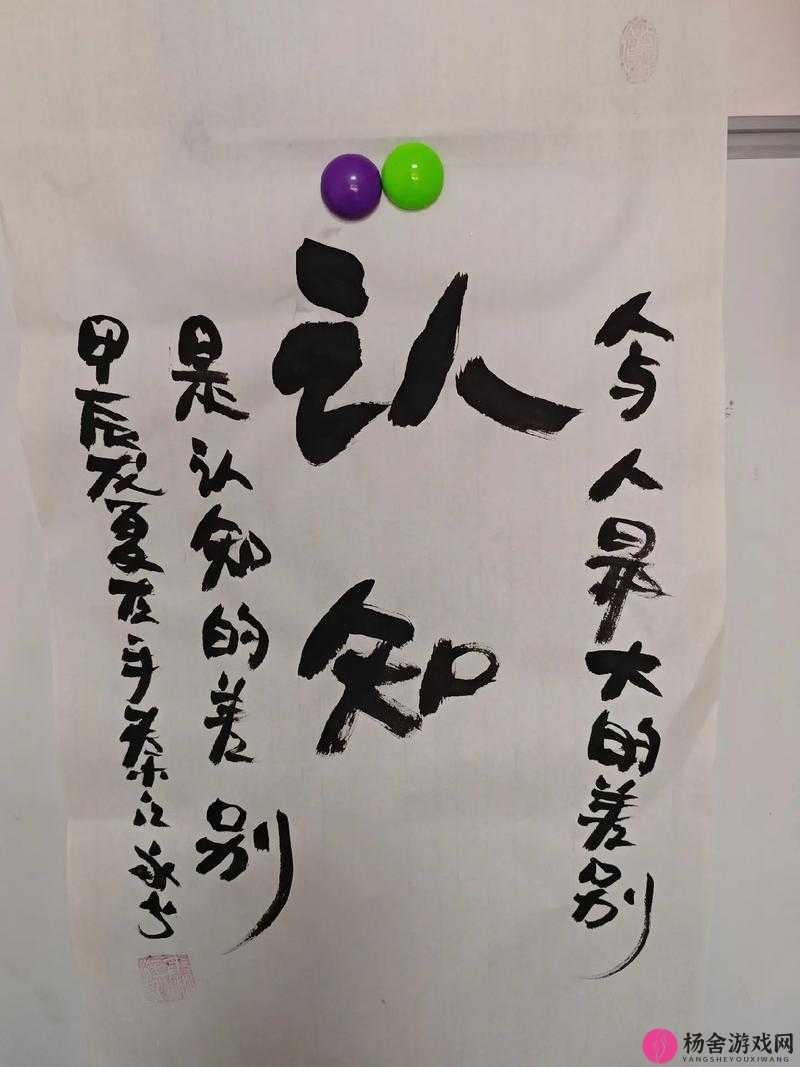 人与人最大的差别
认知
是认知的差别
甲辰夏
杨舍游戏网
YANGSHEYOUXIWANG